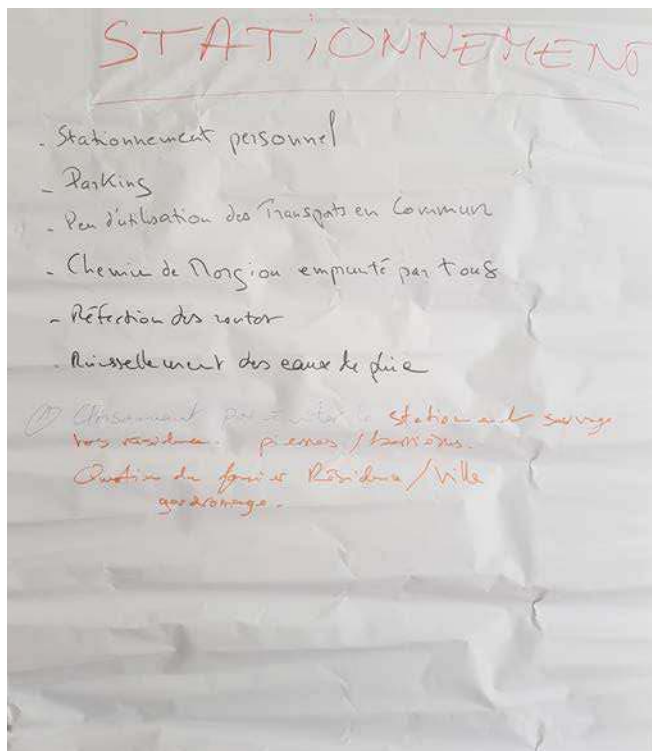 STATIONNEMENT
- Stationnement personnel
- Parking
- Peu d'utilisation des Transports en Commun
- Chemin de Morgiou emprunté par tous
- Réfection des routes
- Ruissellement des eaux de pluie
① Cloisonnement pour éviter le stationnement sauvage
hors résidence. pierres / barrières.
Question du foncier Résidence / Ville
gardiennage.